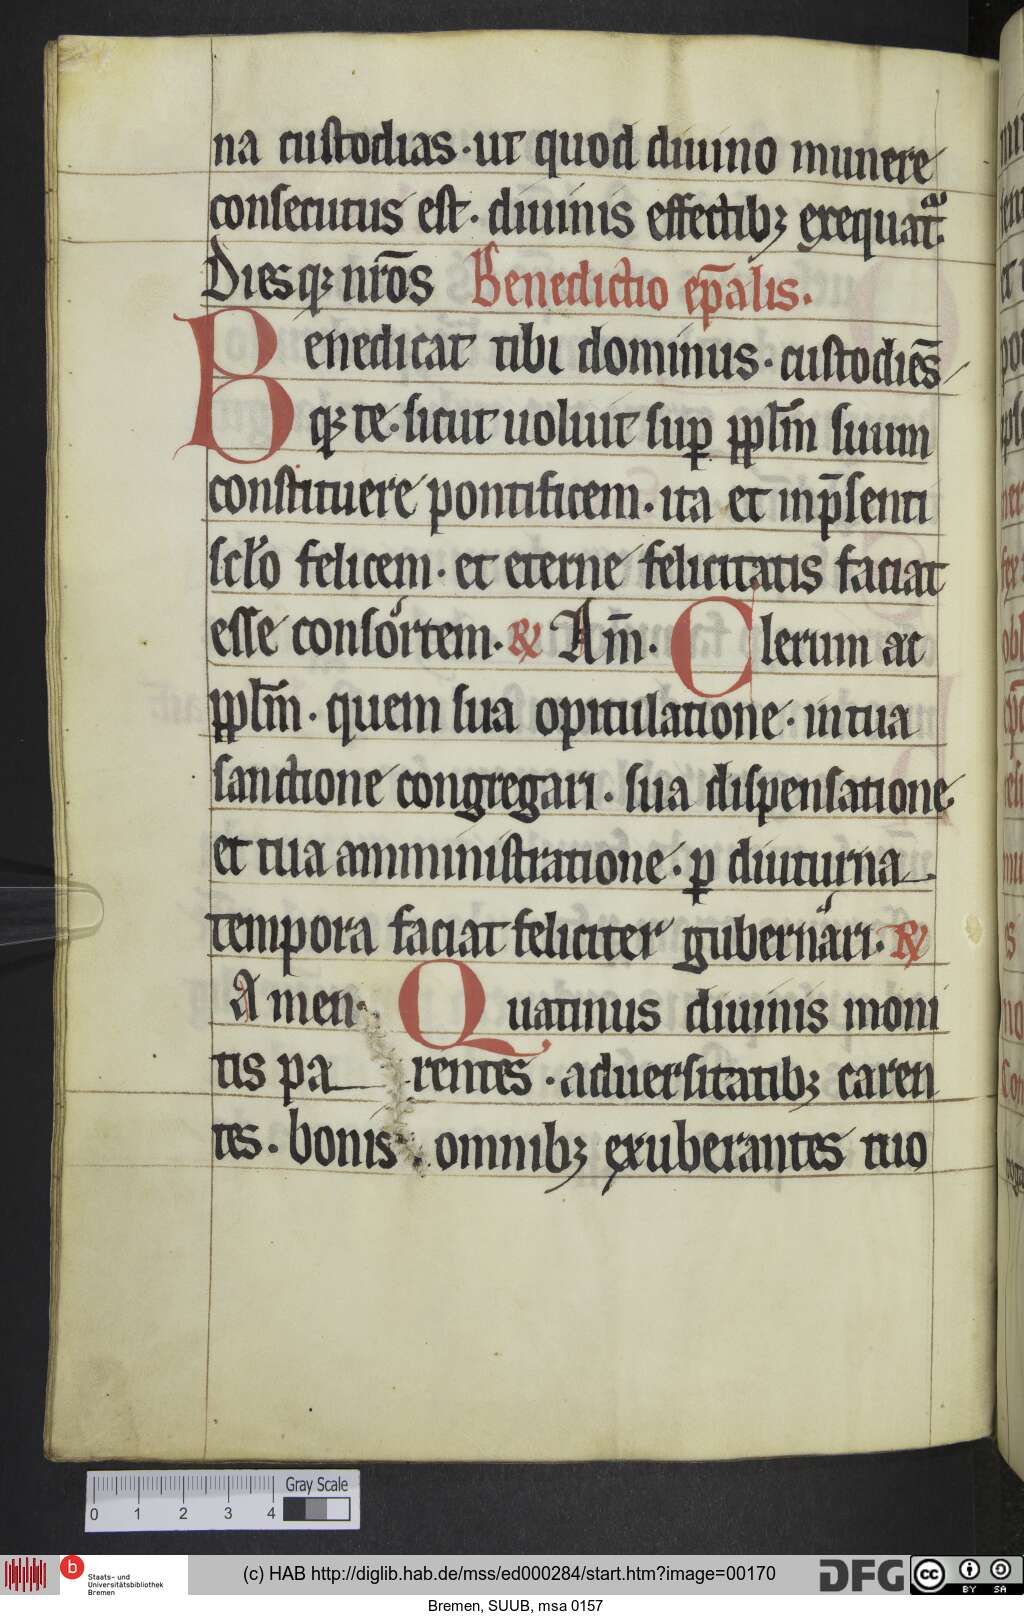 na custodias · ut quod diuino munere
consecutus est · diuinis effectibꝫ exequat᷑
Diesqꝫ nr̄os Benedictio ep̄alis.
Benedicat tibi dominus · custodiēs
qꝫ te · sicut uoluit suꝑ ppl̄m suum
constituere pontificem · ita et in p̄senti
scl̄o felicem · et eterne felicitatis faciat
esse consortem · ℟ Am̄ · Clerum ac
ppl̄m · quem sua opitulatione · in tua
sanctione congregari · sua dispensatione ·
et tua amministratione · ꝑ diuturna
tempora faciat feliciter gubernari · ℟
Amen · Quatinus diuinis moni
tis pa rentes · aduersitatibꝫ caren
tes · bonis omnibꝫ exuberantes tuo
0 1 2 3 4 Gray Scale
b Staats- und Universitätsbibliothek Bremen
(c) HAB http://diglib.hab.de/mss/ed000284/start.htm?image=00170
DFG cc BY SA
Bremen, SUUB, msa 0157